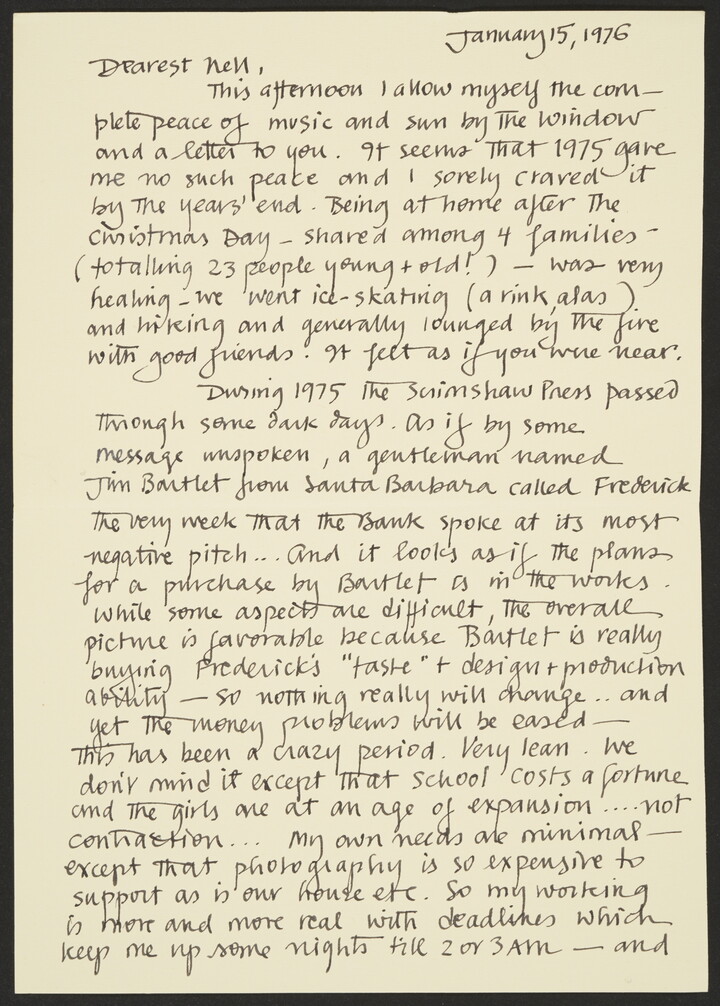 January 15, 1976
Dearest Nell,
This afternoon I allow myself the com–
plete peace of music and sun by the window
and a letter to you. It seems that 1975 gave
me no such peace and I sorely craved it
by the years' end. Being at home after the
Christmas Day – shared among 4 families –
(totalling 23 people young + old!) – was very
healing – we went ice-skating (a rink, alas)
and hiking and generally lounged by the fire
with good friends. It felt as if you were near.
During 1975 the Scrimshaw Press passed
through some dark days. As if by some
message unspoken, a gentleman named
Jim Bartlet from Santa Barbara called Frederick
the very week that the Bank spoke at its most
negative pitch... And it looks as if the plans
for a purchase by Bartlet is in the works.
While some aspects are difficult, the overall
picture is favorable because Bartlet is really
buying Frederick's "taste" + design + production
ability – so nothing really will change .. and
yet the money problems will be eased –
This has been a crazy period. Very lean. We
don't mind it except that school costs a fortune
and the girls are at an age of expansion .... not
contraction... My own needs are minimal –
except that photography is so expensive to
support as is our house etc. So my working
is more and more real with deadlines which
keep me up some nights till 2 or 3 AM – and